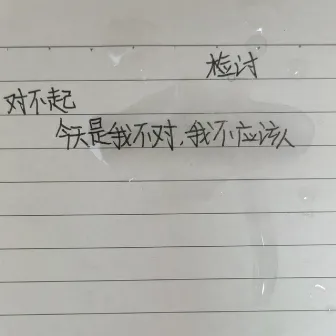 检讨
对不起
今天是我不对,我不应该人